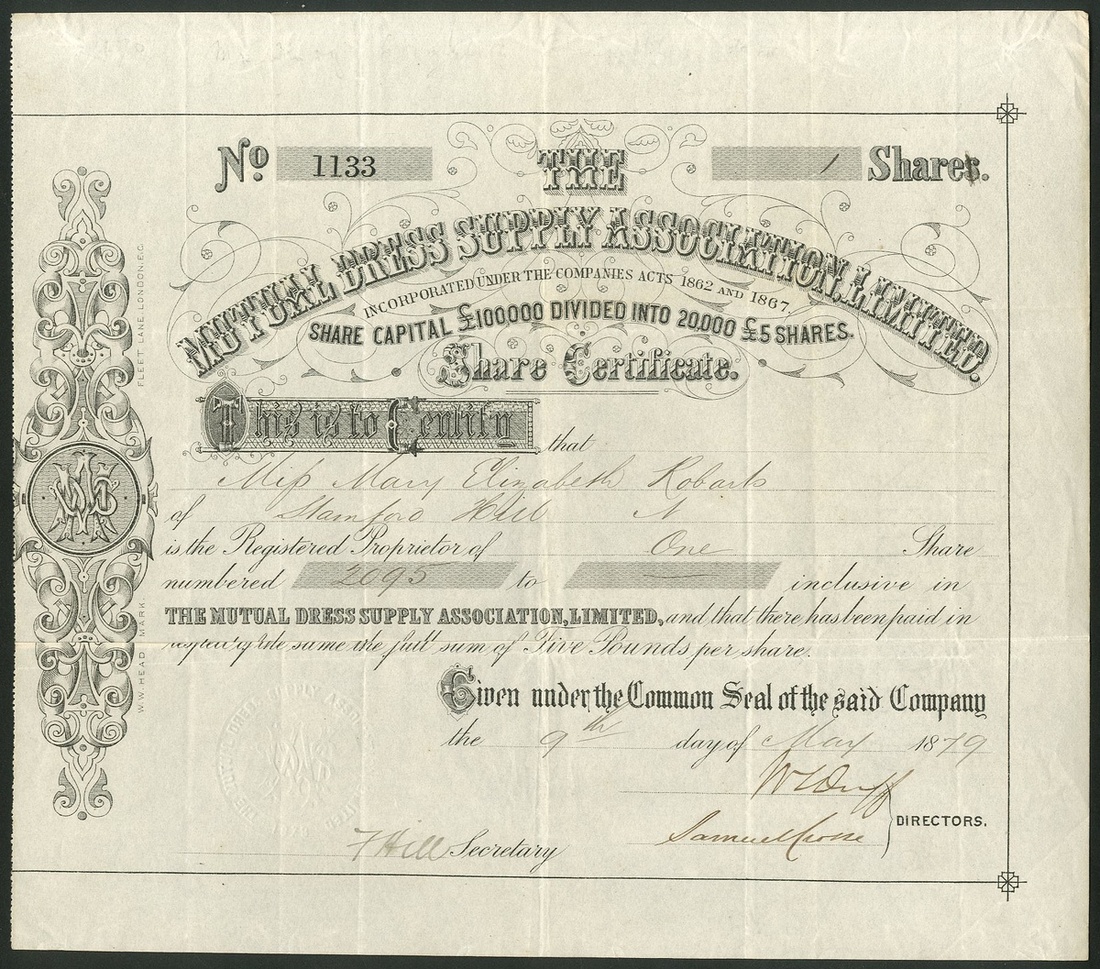 No. 1133
1 Shares.
THE
MUTUAL DRESS SUPPLY ASSOCIATION, LIMITED.
INCORPORATED UNDER THE COMPANIES ACTS 1862 AND 1867.
SHARE CAPITAL £100,000 DIVIDED INTO 20,000 £5 SHARES.
Share Certificate.
This is to Certify that
Miss Mary Elizabeth Robarts
of Stamford Hill N
is the Registered Proprietor of One Share
numbered 2095 to — inclusive in
THE MUTUAL DRESS SUPPLY ASSOCIATION, LIMITED, and that there has been paid in
respect of the same the full sum of Five Pounds per share.
Given under the Common Seal of the said Company
the 9th day of May 1879
W Duff
Samuel Crosse
DIRECTORS.
F Hill Secretary
W.W. HEAD MARK FLEET LANE, LONDON, E.C.